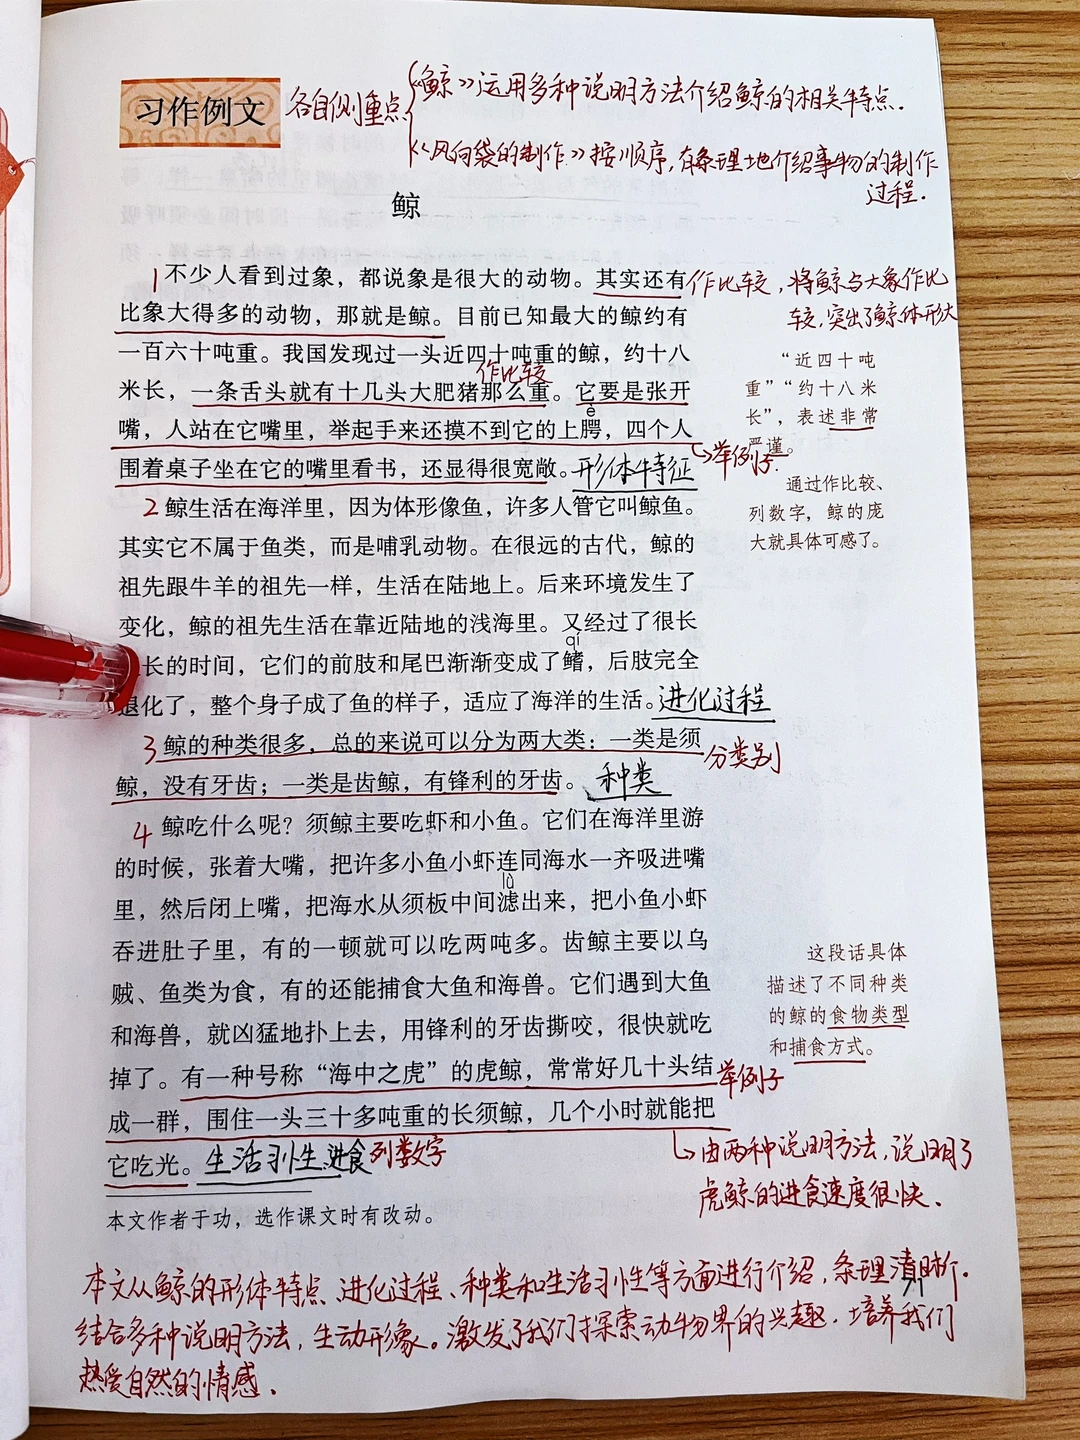 习作例文
各自侧重点
《鲸》运用多种说明方法介绍鲸的相关特点.
《风向袋的制作》按顺序,有条理地介绍事物的制作
过程.
鲸
1 不少人看到过象，都说象是很大的动物。其实还有
作比较,将鲸与大象作比
比象大得多的动物，那就是鲸。目前已知最大的鲸约有
较,突出了鲸体形大
一百六十吨重。我国发现过一头近四十吨重的鲸，约十八
作比较
米长，一条舌头就有十几头大肥猪那么重。它要是张开
è
嘴，人站在它嘴里，举起手来还摸不到它的上腭，四个人
举例子.
围着桌子坐在它的嘴里看书，还显得很宽敞。形体特征
“近四十吨
重”“约十八米
长”，表述非常
严谨。
通过作比较、
列数字，鲸的庞
大就具体可感了。
2 鲸生活在海洋里，因为体形像鱼，许多人管它叫鲸鱼。
其实它不属于鱼类，而是哺乳动物。在很远的古代，鲸的
祖先跟牛羊的祖先一样，生活在陆地上。后来环境发生了
变化，鲸的祖先生活在靠近陆地的浅海里。又经过了很长
qí
长的时间，它们的前肢和尾巴渐渐变成了鳍，后肢完全
退化了，整个身子成了鱼的样子，适应了海洋的生活。进化过程
3 鲸的种类很多，总的来说可以分为两大类：一类是须
分类别
鲸，没有牙齿；一类是齿鲸，有锋利的牙齿。种类
4 鲸吃什么呢？须鲸主要吃虾和小鱼。它们在海洋里游
的时候，张着大嘴，把许多小鱼小虾连同海水一齐吸进嘴
lǜ
里，然后闭上嘴，把海水从须板中间滤出来，把小鱼小虾
吞进肚子里，有的一顿就可以吃两吨多。齿鲸主要以乌
贼、鱼类为食，有的还能捕食大鱼和海兽。它们遇到大鱼
和海兽，就凶猛地扑上去，用锋利的牙齿撕咬，很快就吃
掉了。有一种号称“海中之虎”的虎鲸，常常好几十头结
举例子
成一群，围住一头三十多吨重的长须鲸，几个小时就能把
它吃光。生活习性.进食 列数字
这段话具体
描述了不同种类
的鲸的食物类型
和捕食方式。
由两种说明方法,说明了
虎鲸的进食速度很快.
本文作者于功，选作课文时有改动。
本文从鲸的形体特点、进化过程、种类和生活习性等方面进行介绍,条理清晰.
结合多种说明方法,生动形象。激发了我们探索动物界的兴趣.培养我们
热爱自然的情感.